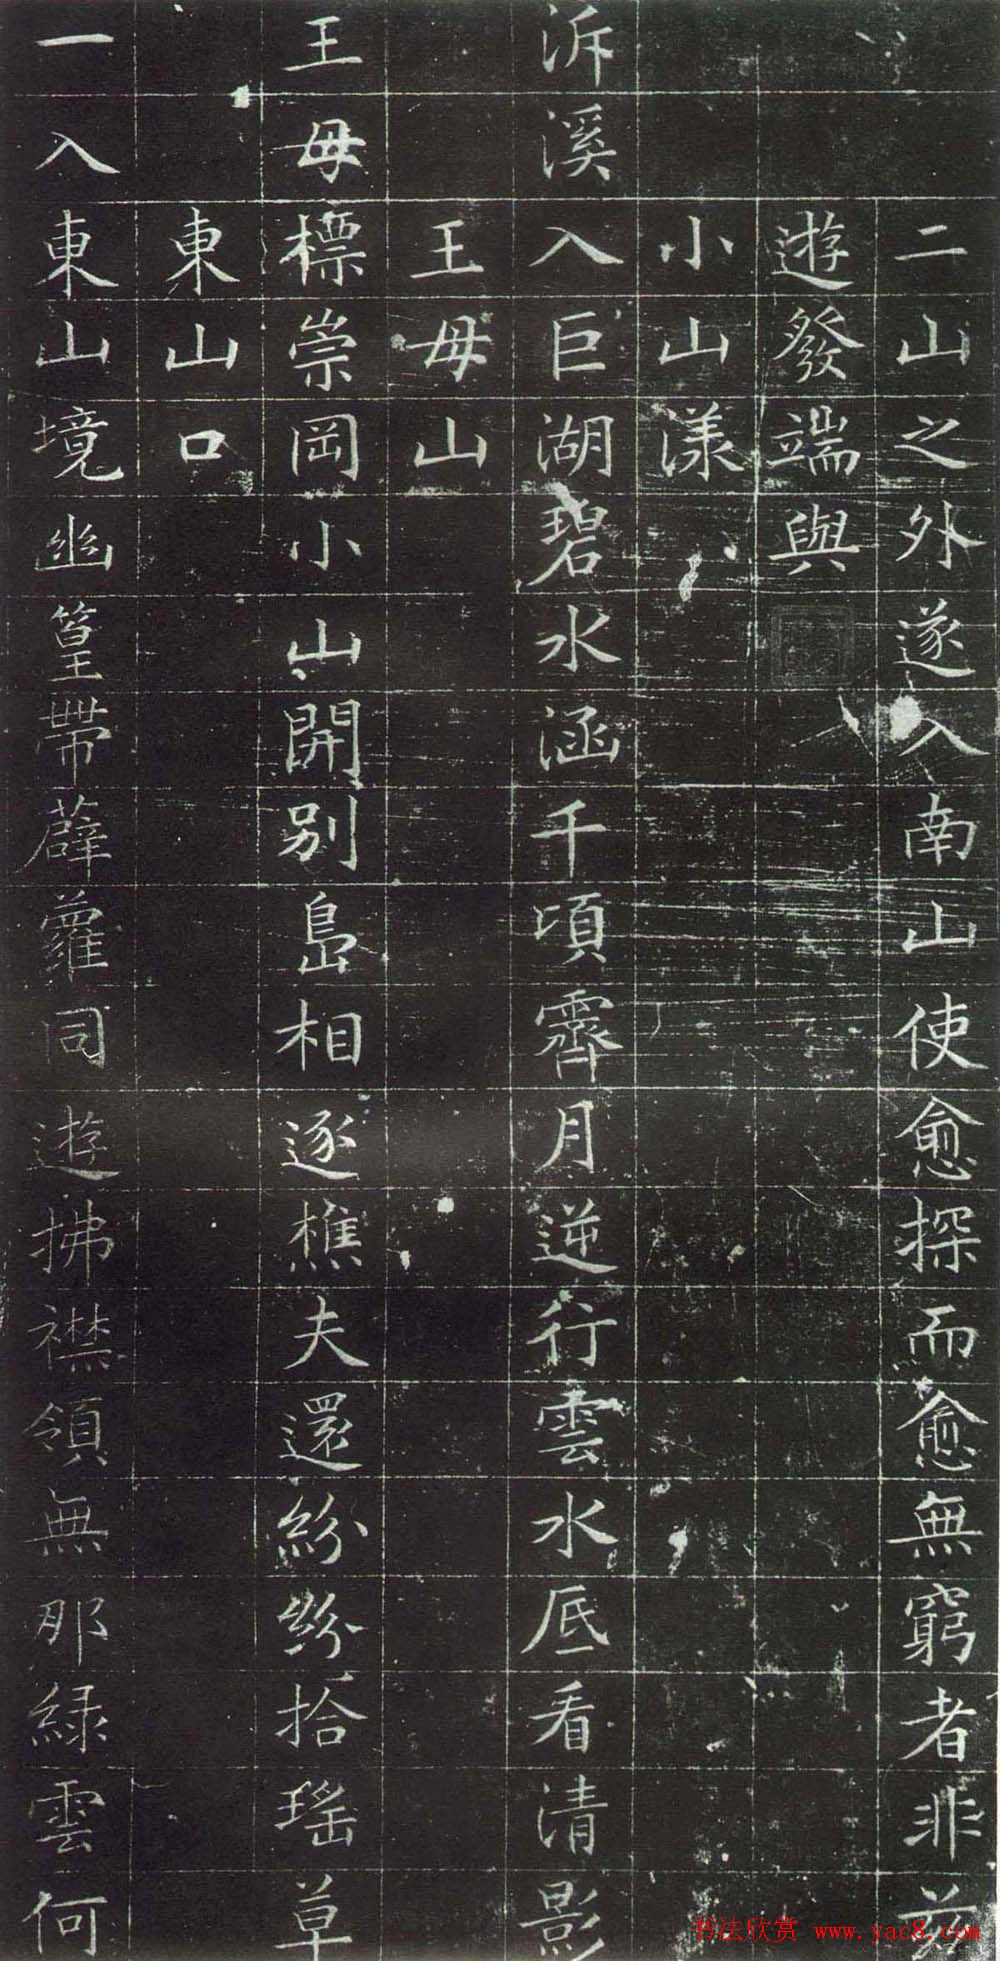 二山之外遂入南山使愈探而愈無窮者非茲
遊發端與
小山漾
泝溪入巨湖碧水涵千頃霽月逆行雲水底看清影
王母山
王母標崇岡小山開別島相逐樵夫還紛紛拾瑤草
東山口
一入東山境幽篁帶薜蘿同遊拂襟領無那綠雲何
书法欣赏 www.yac8.com